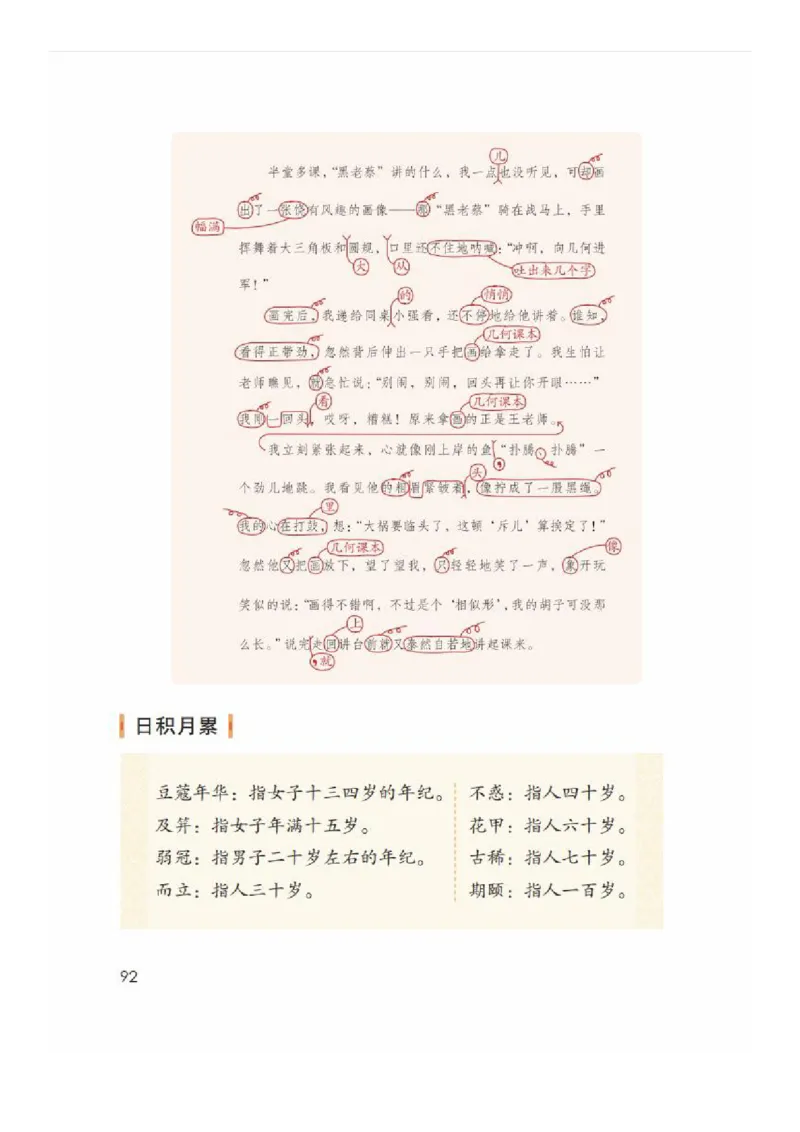 儿
半堂多课，“黑老蔡”讲的什么，我一点也没听见，可却画
出了一张饶有风趣的画像——那“黑老蔡”骑在战马上，手里
幅满
挥舞着大三角板和圆规，口里还不住地呐喊：“冲啊，向几何进
大 从 吐出来几个字
军！”
的 悄悄
画完后，我递给同桌小强看，还不停地给他讲着。谁知，
几何课本
看得正带劲，忽然背后伸出一只手把画给拿走了。我生怕让
老师瞧见，就急忙说：“别闹，别闹，回头再让你开眼……”
看 几何课本
我刚一回头，哎呀，糟糕！原来拿画的正是王老师。
我立刻紧张起来，心就像刚上岸的鱼“扑腾、扑腾”一
， 头
个劲儿地跳。我看见他的粗眉紧皱着，像拧成了一股黑绳。
里
我的心在打鼓，想：“大祸要临头了，这顿‘斥儿’算挨定了！”
几何课本 像
忽然他又把画放下，望了望我，只轻轻地笑了一声，象开玩
笑似的说：“画得不错啊，不过是个‘相似形’，我的胡子可没那
上
么长。”说完走回讲台前就又泰然自若地讲起课来。
，就
日积月累
豆蔻年华：指女子十三四岁的年纪。
及笄：指女子年满十五岁。
弱冠：指男子二十岁左右的年纪。
而立：指人三十岁。
不惑：指人四十岁。
花甲：指人六十岁。
古稀：指人七十岁。
期颐：指人一百岁。
92